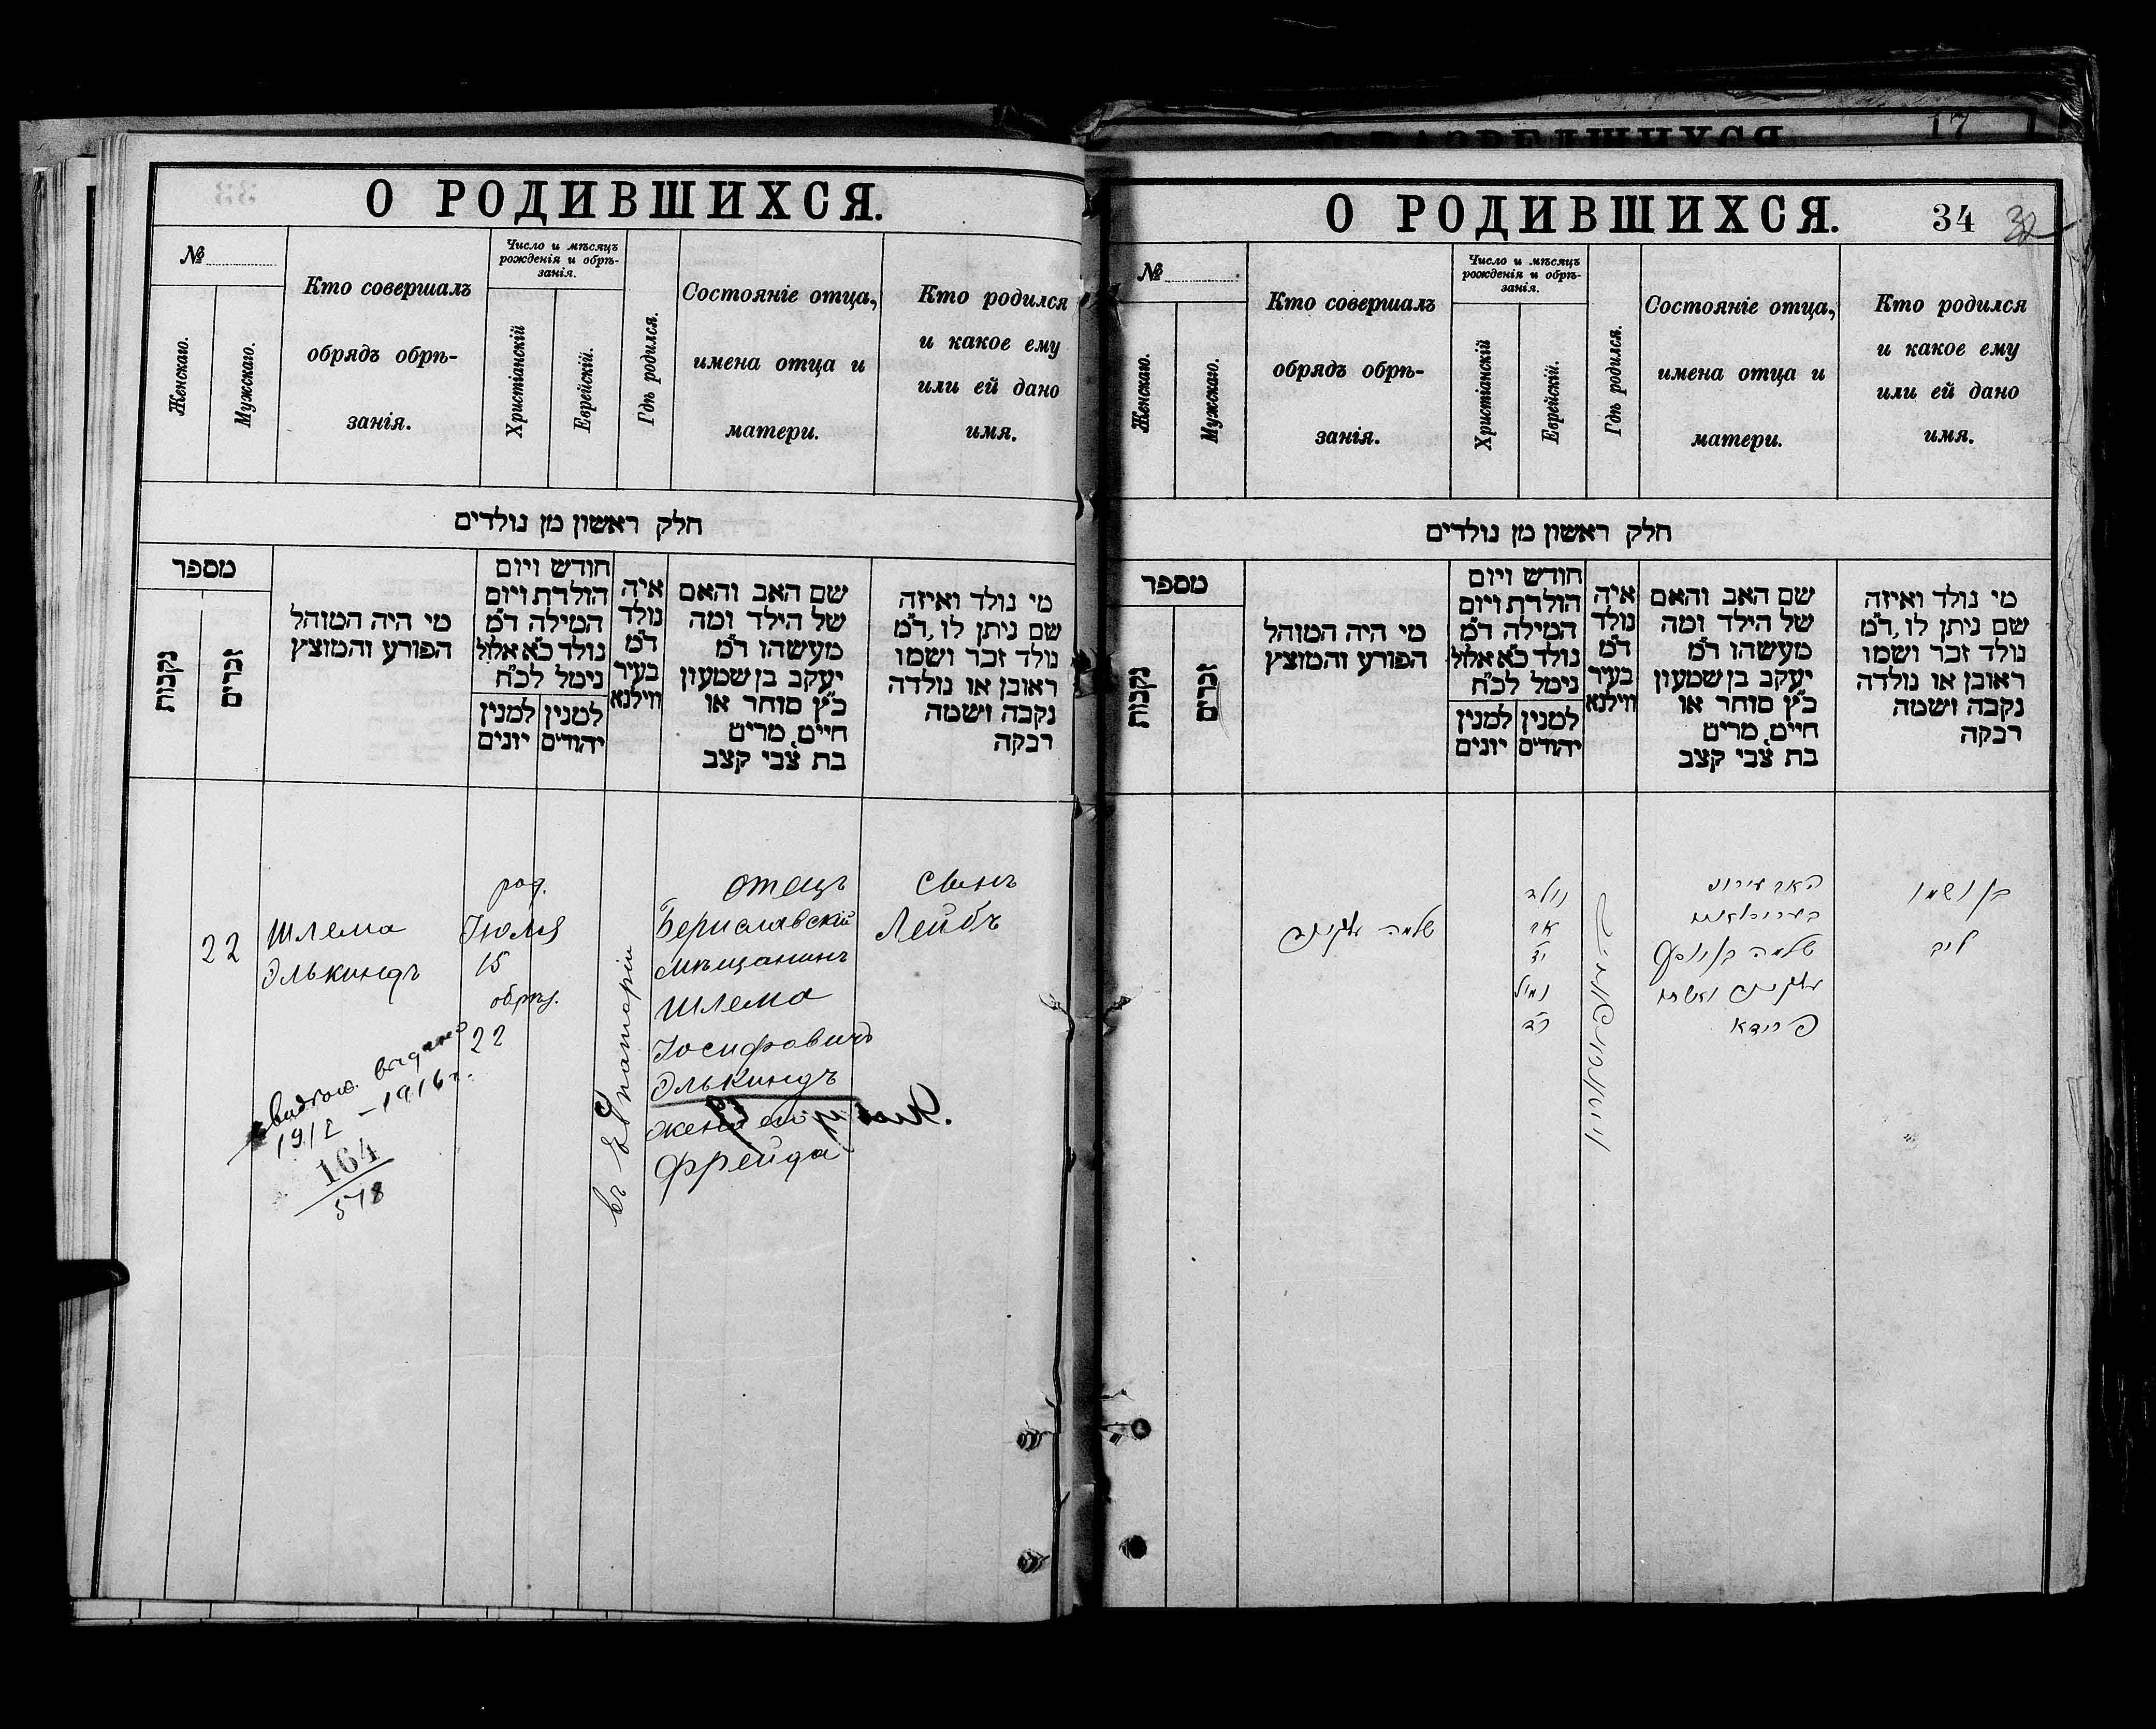 О РОДИВШИХСЯ.
№
Женскаго.
Мужскаго.
Кто совершалъ
обрядъ обрѣ-
занія.
Число и мѣсяцъ
рожденія и обрѣ-
занія.
Христіанскій
Еврейскій.
Гдѣ родился.
Состояніе отца,
имена отца и
матери.
Кто родился
и какое ему
или ей дано
имя.
חלק ראשון מן נולדים
מספר
נקבות
זכרים
מי היה המוהל
הפורע והמוצץ
חודש ויום
הולדת ויום
המילה ד"מ
נולד כ"א אלול
נימל לכ"ח
למנין יהודים
למנין יונים
איה
נולד
ד"מ
בעיר
ווילנא
שם האב והאם
של הילד ומה
מעשהו ד"מ
יעקב בן שמעון
כ"ץ סוחר או
חיים, מרים
בת צבי קצב
מי נולד ואיזה
שם ניתן לו, ד"מ
נולד זכר ושמו
ראובן או נולדה
נקבה ושמה
רבקה
22
Шлема
Элькиндъ
род.
Іюля
15
обрѣз.
22
въ Евпаторіи
отецъ
Бериславскій
мѣщанинъ
Шлема
Іосифовичъ
Элькиндъ
жена его
Фрейда
сынъ
Лейбъ
1912 – 1916 г.
164
578
О РОДИВШИХСЯ.
34
17
№
Женскаго.
Мужскаго.
Кто совершалъ
обрядъ обрѣ-
занія.
Число и мѣсяцъ
рожденія и обрѣ-
занія.
Христіанскій
Еврейскій.
Гдѣ родился.
Состояніе отца,
имена отца и
матери.
Кто родился
и какое ему
или ей дано
имя.
חלק ראשון מן נולדים
מספר
נקבות
זכרים
מי היה המוהל
הפורע והמוצץ
חודש ויום
הולדת ויום
המילה ד"מ
נולד כ"א אלול
נימל לכ"ח
למנין יהודים
למנין יונים
איה
נולד
ד"מ
בעיר
ווילנא
שם האב והאם
של הילד ומה
מעשהו ד"מ
יעקב בן שמעון
כ"ץ סוחר או
חיים, מרים
בת צבי קצב
מי נולד ואיזה
שם ניתן לו, ד"מ
נולד זכר ושמו
ראובן או נולדה
נקבה ושמה
רבקה
שלמה עלקינד
נולד
אב
י"ד
נמול
שלמה בן יוסף
עלקינד ואשתו
פריידא
בן ושמו
ליב